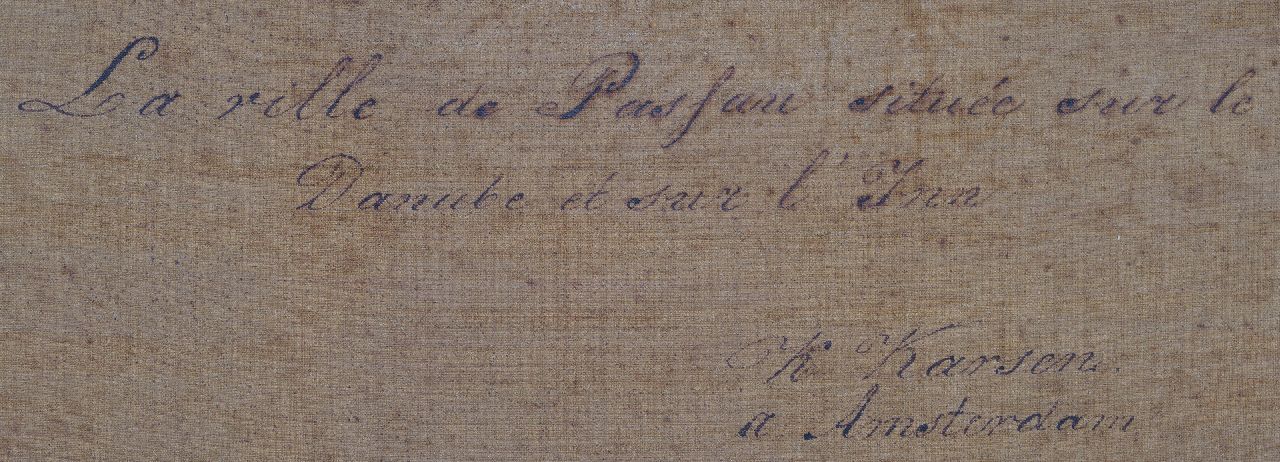 La ville de Pasſau située sur le
Danube et sur l'Inn
K Karsen.
a Amsterdam